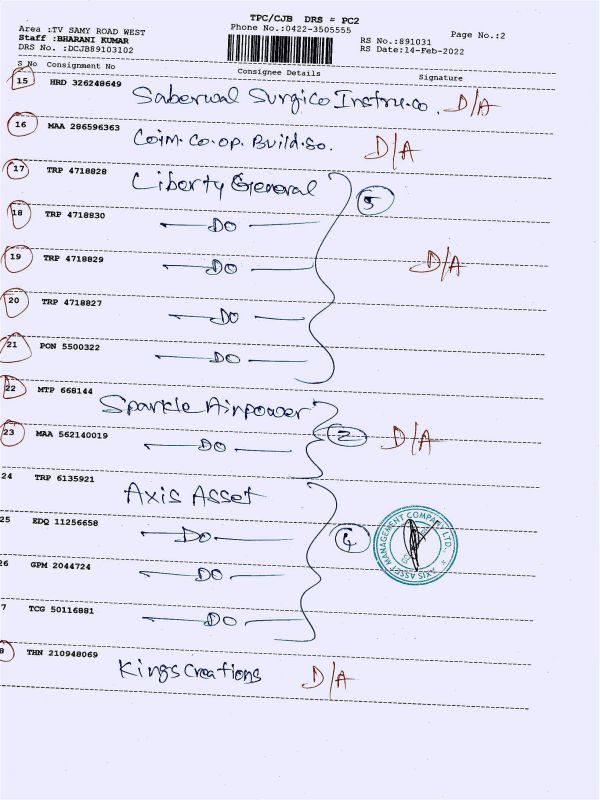 TPC/CJB DRS = PC2
Area :TV SAMY ROAD WEST
Phone No.:0422-3505555
Page No.:2
Staff :BHARANI KUMAR
RS No.:891031
DRS No. :DCJB89103102
RS Date:14-Feb-2022
S No Consignment No Consignee Details Signature
15 HRD 326248649
Saberwal Surgico Instru.co. D/A
16 MAA 286596363
Coim.co.op. Build.So. D/A
17 TRP 4718828
Liberty General 5
18 TRP 4718830
DO
19 TRP 4718829
DO D/A
20 TRP 4718827
DO
21 PON 5500322
DO
22 MTP 668144
Sparkle Airpower
23 MAA 562140019
DO 2 D/A
24 TRP 6135921
Axis Asset
25 EDQ 11256658
DO
AXIS ASSET MANAGEMENT COMPANY LTD.
26 GPM 2044724
DO
7 TCG 50116881
DO
8 THN 210948069
Kings Creations D/A